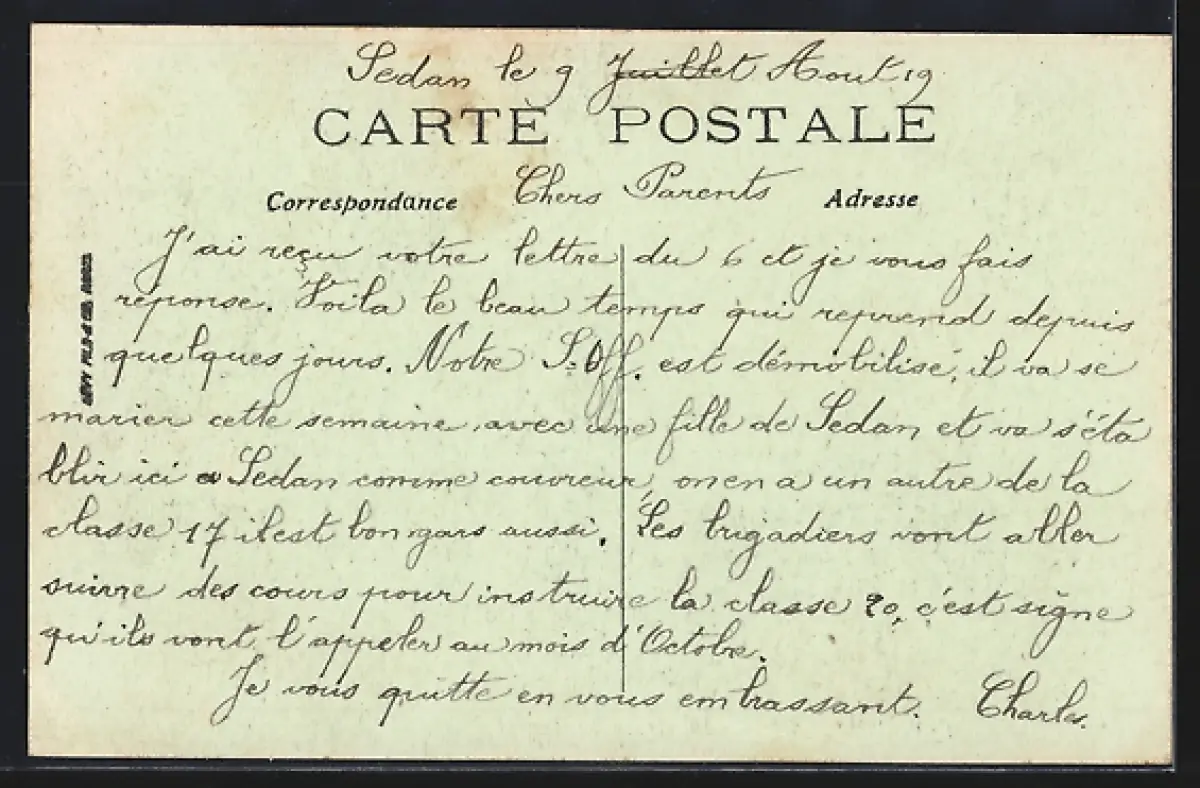 Sedan le 9 Juillet Aout 19
CARTE POSTALE
Chers Parents
Correspondance Adresse
J'ai reçu votre lettre du 6 et je vous fais
réponse. Voila le beau temps qui reprend depuis
quelques jours. Notre S. Off. est démobilisé, il va se
marier cette semaine avec une fille de Sedan et va s'éta
blir ici a Sedan comme couvreur, on en a un autre de la
classe 17 il est bon gars aussi. Les brigadiers vont aller
suivre des cours pour instruire la classe 20, c'est signe
qu'ils vont l'appeler au mois d'Octobre.
Je vous quitte en vous embrassant. Charles.